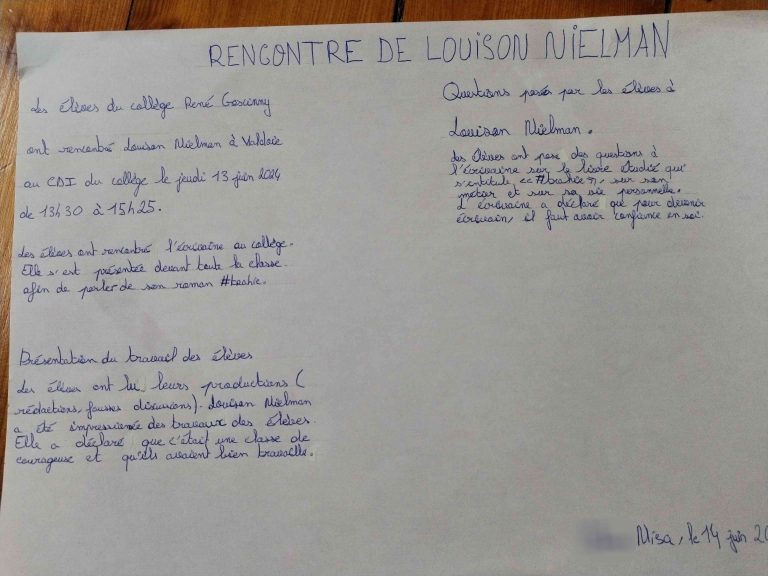 RENCONTRE DE LOUISON NIELMAN
Les élèves du collège René Goscinny
ont rencontré Louison Nielman à Valdoie
au CDI du collège le jeudi 13 juin 2024
de 13h30 à 15h25.
Les élèves ont rencontré l'écrivaine au collège.
Elle s'est présentée devant toute la classe
afin de parler de son roman #beahie.
Présentation du travail des élèves
Les élèves ont lu leurs productions (
rédactions, fausses discussions). Louison Nielman
a été impressionée des travaux des élèves.
Elle a déclaré que c'était une classe de
courageuse et qu'ils avaient bien travaillé.
Questions posés par les élèves à
Louison Nielman.
Les élèves ont posé des questions à
l'écrivaine sur le livre étudié qui
s'entitule <<#beahie>>, sur son
métier et sur sa vie personnelle.
L'écrivaine a déclaré que pour devenir
écrivain, il faut avoir confiance en soi.
Misa, le 14 juin 20